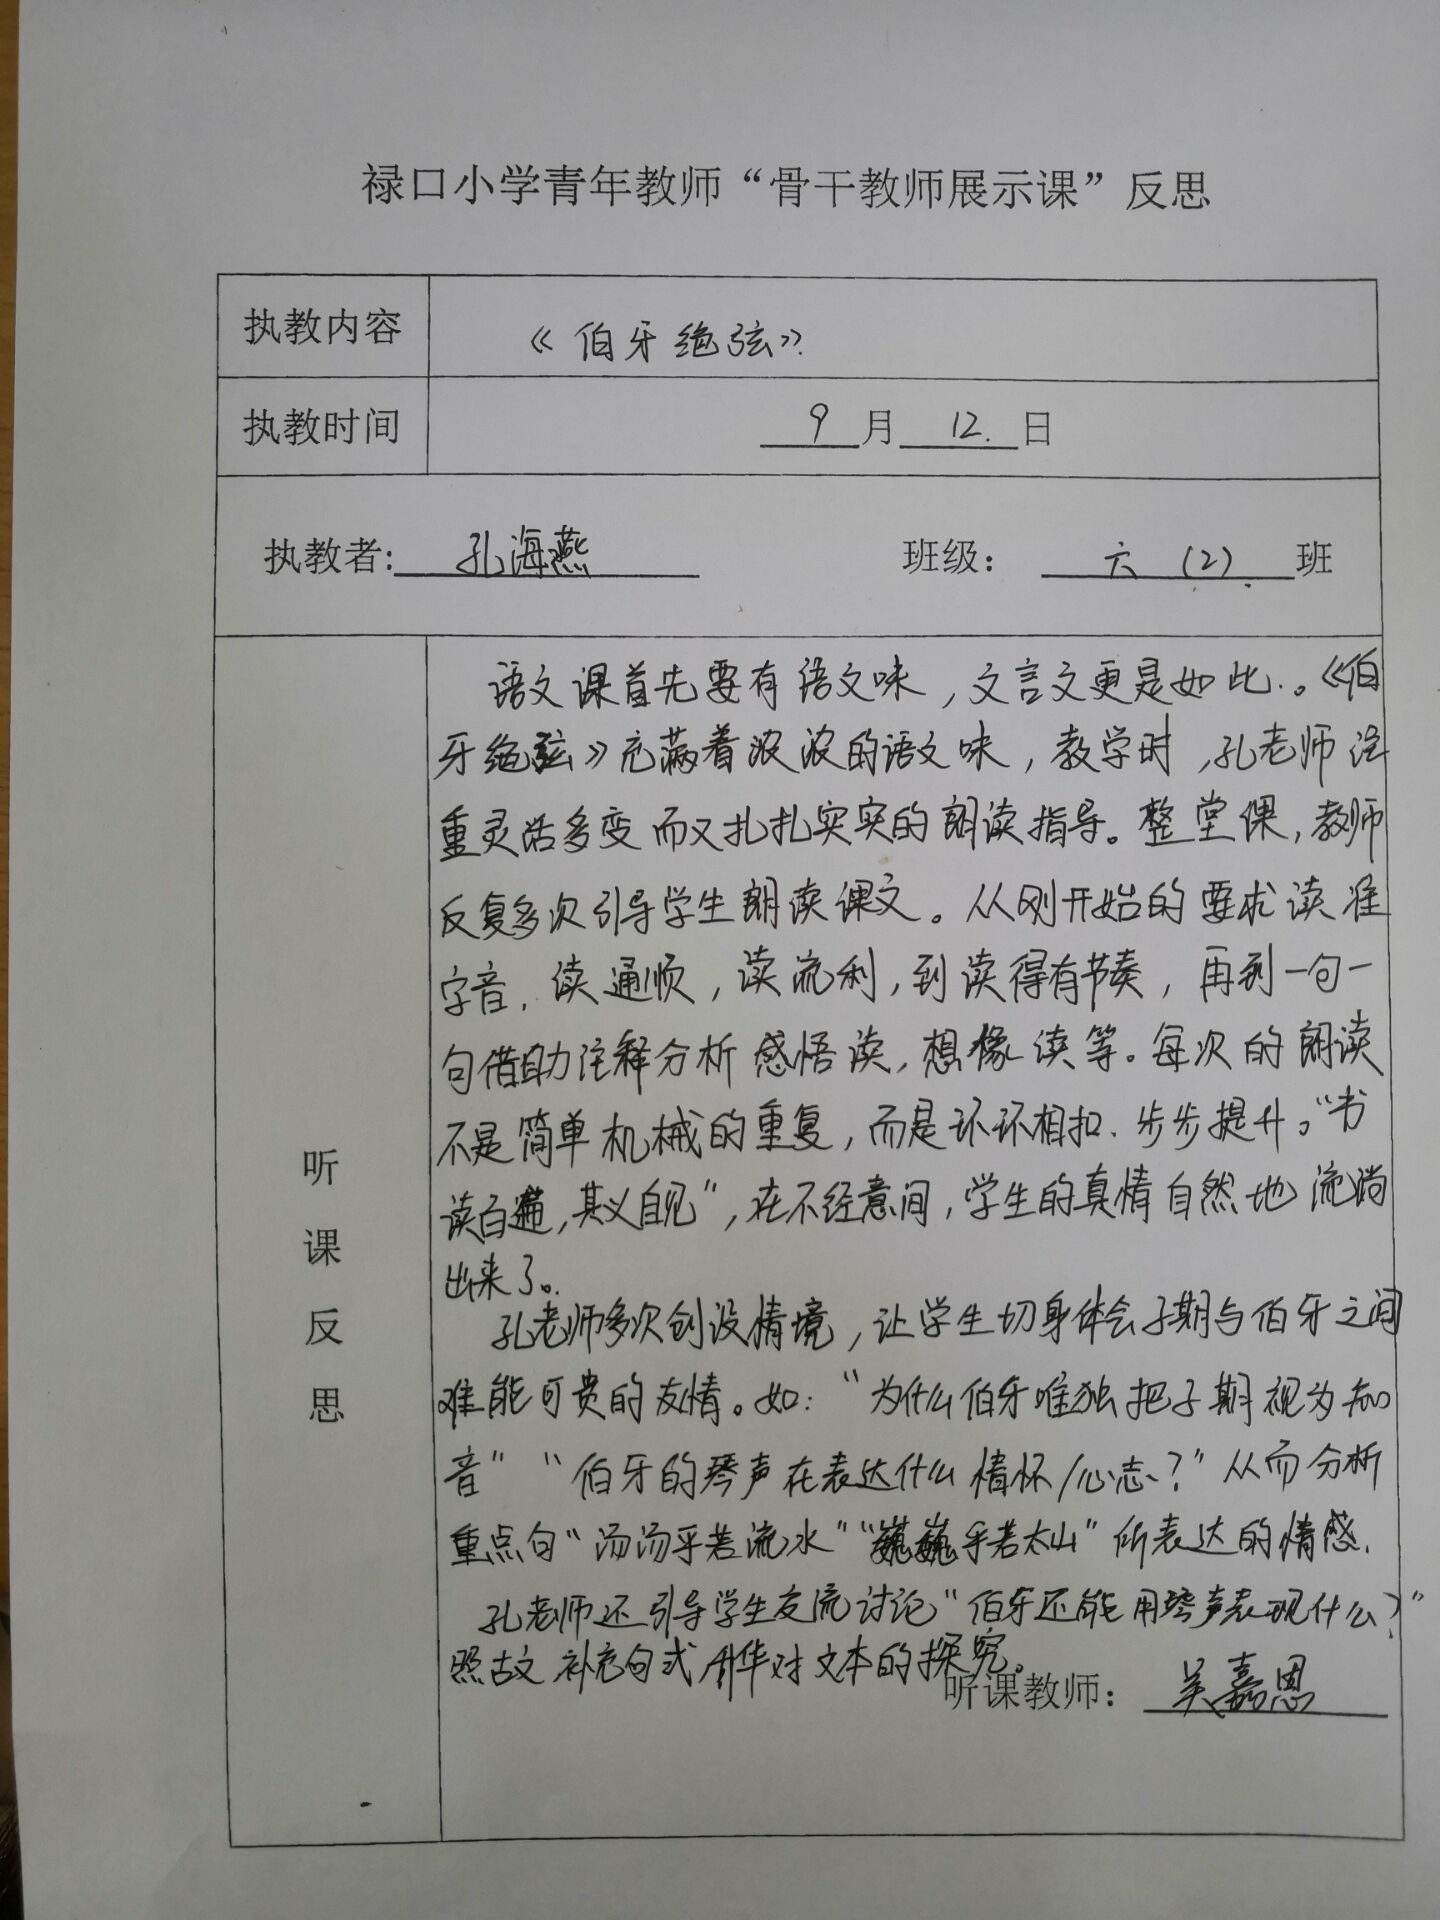 禄口小学青年教师“骨干教师展示课”反思
执教内容
《伯牙绝弦》
执教时间
9月12.日
执教者:孔海燕 班级：六（2）班
听课反思
语文课首先要有语文味，文言文更是如此。《伯
牙绝弦》充满着浓浓的语文味，教学时，孔老师注
重灵活多变而又扎扎实实的朗读指导。整堂课，教师
反复多次引导学生朗读课文。从刚开始的要求读准
字音，读通顺，读流利，到读得有节奏，再到一句一
句借助注释分析感悟读，想像读等。每次的朗读
不是简单机械的重复，而是环环相扣、步步提升。“书
读百遍，其义自见”，在不经意间，学生的真情自然地流淌
出来了。
孔老师多次创设情境，让学生切身体会子期与伯牙之间
难能可贵的友情。如：“为什么伯牙唯独把子期视为知
音”“伯牙的琴声在表达什么情怀/心志？”从而分析
重点句“汤汤乎若流水”“巍巍乎若太山”所表达的情感.
孔老师还引导学生交流讨论“伯牙还能用琴声表现什么？”
照古文补充句式升华对文本的探究。
听课教师：嘉思